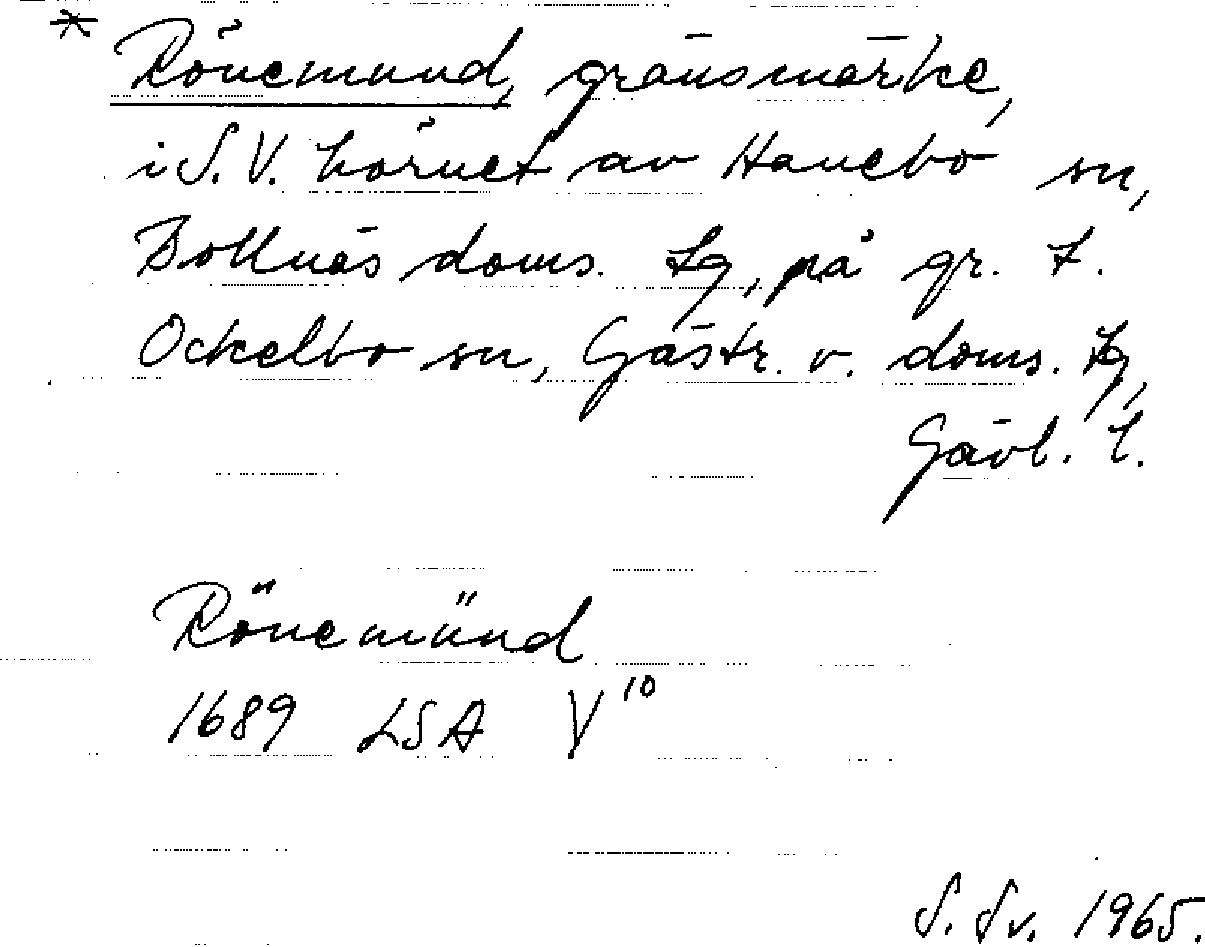 * Rönemund, gränsmärke,
i S.V. hörnet av Hanebo sn,
Bollnäs doms. tg, på gr. t.
Ockelbo sn, Gästr. v. doms. tg,
Gävl. l.
Rönemünd
1689 LSA V¹⁰
S. Sv. 1965.